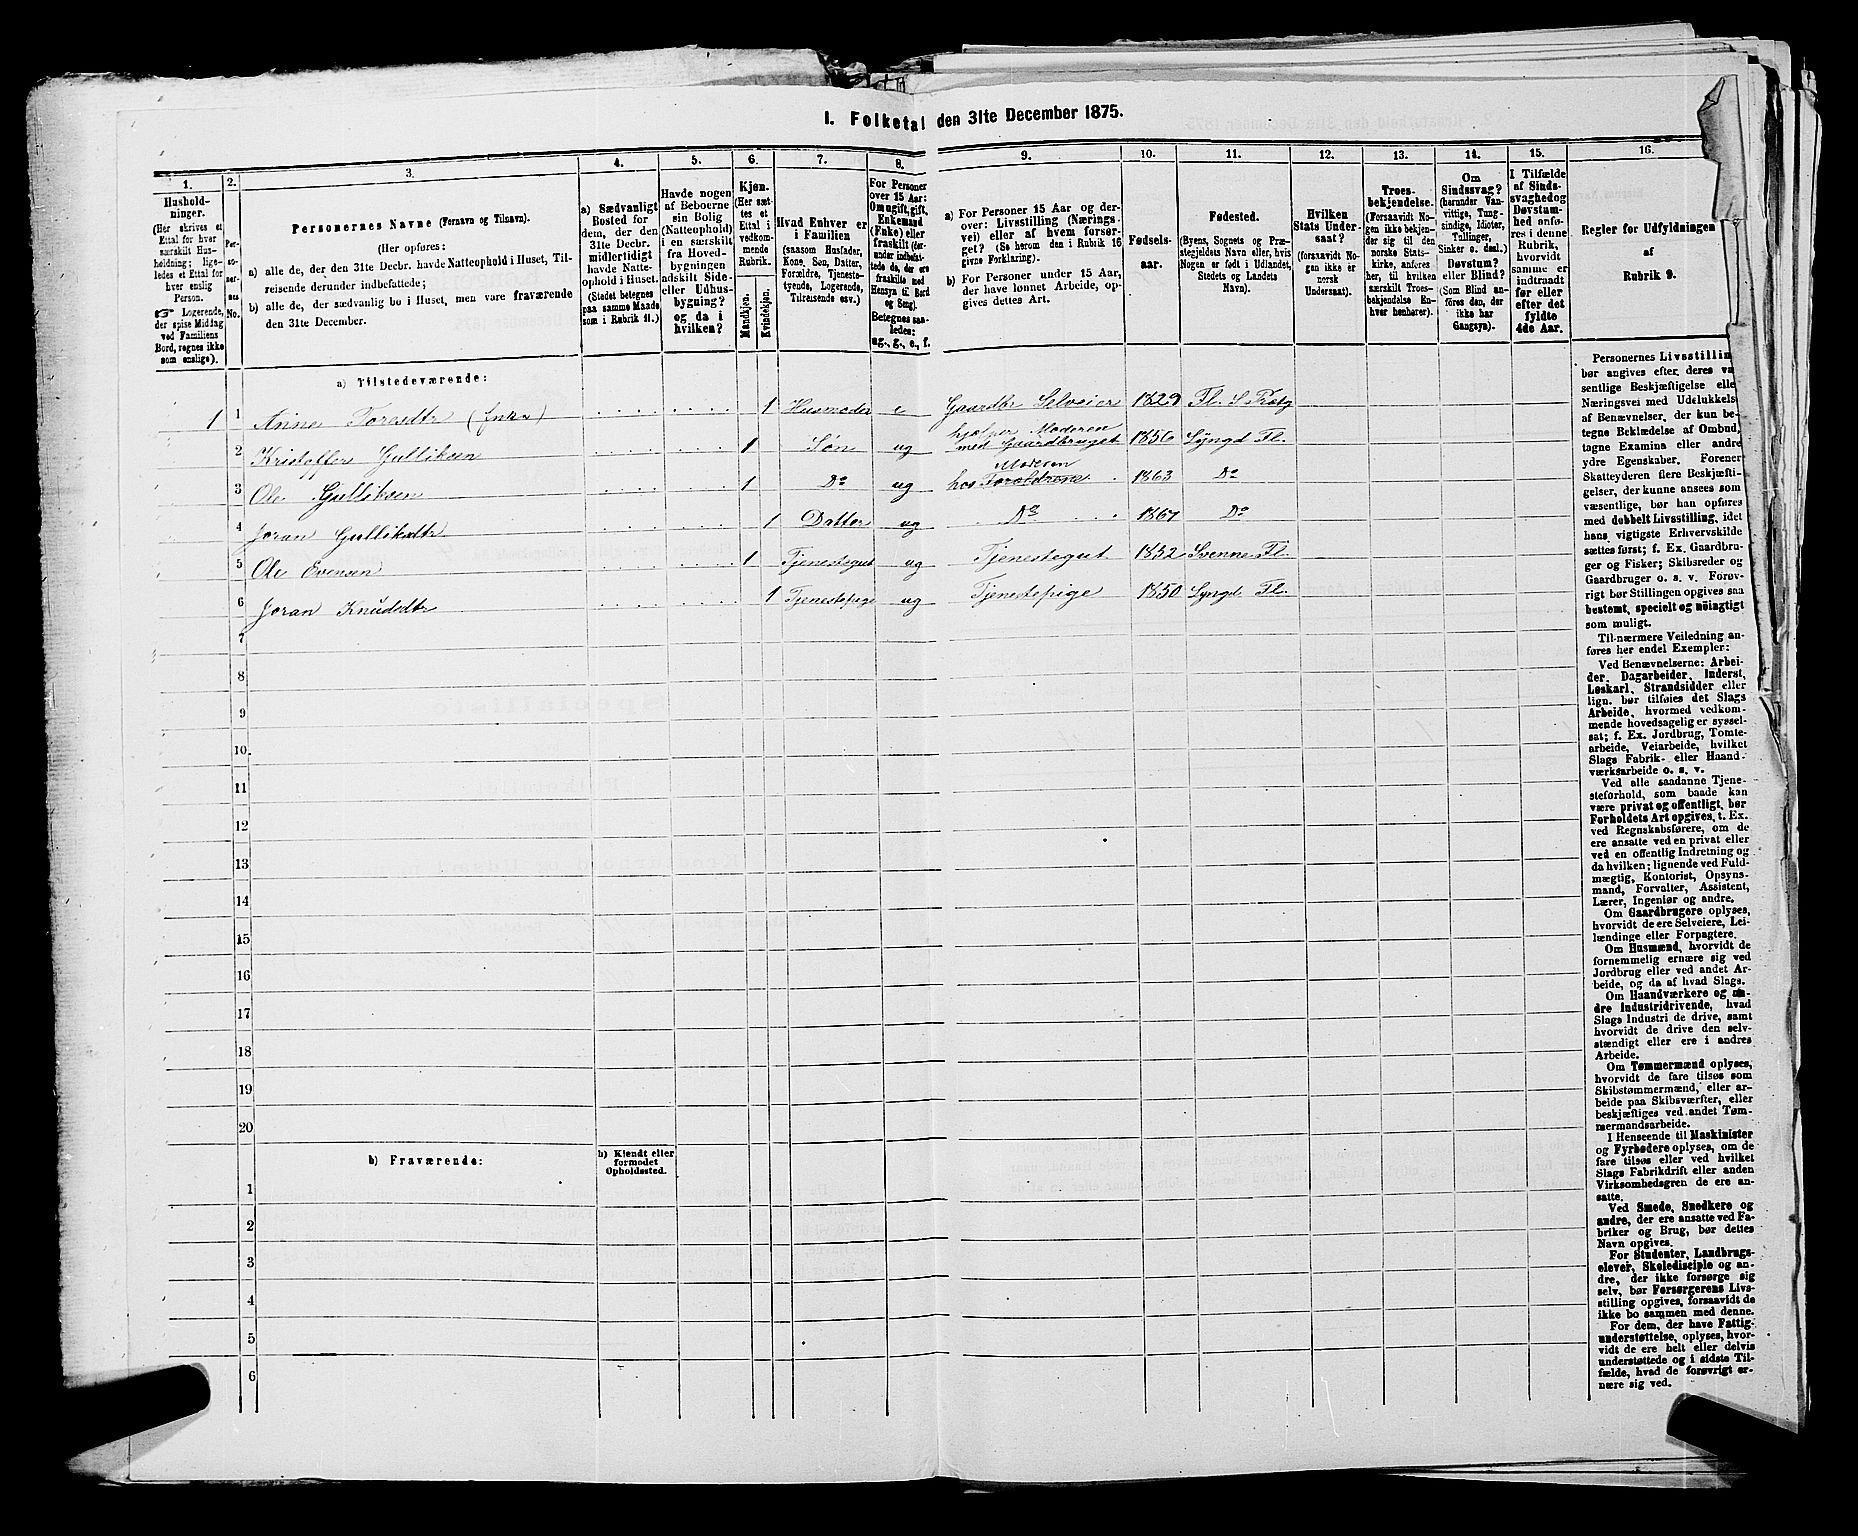 I. Folketal den 31te December 1875.
1.
2.
3.
4.
5.
6.
7.
8.
9.
10.
11.
12.
13.
14.
15.
16.
Hushold-
ninger.
(Her skrives et
Ettal for hver
særskilt Hus-
holdning; lige-
ledes et Ettal for
hver enslig
Person.
☞ Logerende,
der spise Middag
ved Familiens
Bord, regnes ikke
som enslige).
Per-
so-
ner-
nes
No.
Personernes Navne (Fornavn og Tilnavn).
(Her opføres:
a) alle de, der den 31te Decbr. havde Natteophold i Huset, Til-
reisende derunder indbefattede;
b) alle de, der sædvanlig bo i Huset, men vare fraværende
den 31te December.
a) Sædvanligt
Bosted for
dem, der den
31te Decbr.
midlertidigt
havde Natte-
ophold i Huset.
(Stedet betegnes
paa samme Maade
som i Rubrik 11.)
Havde nogen
af Beboerne
sin Bolig
(Natteophold)
i en særskilt
fra Hoved-
bygningen
adskilt Side-
eller Udhus-
bygning?
og da i
hvilken?
Kjøn.
(Her sæt-
tes et
Ettal i
vedkom-
mende
Rubrik.
Mandkjøn.
Kvindekjøn.
Hvad Enhver er
i Familien
(saasom Husfader,
Kone, Søn, Datter,
Forældre, Tjeneste-
tyende, Logerende,
Tilreisende osv.)
For Personer
over 15 Aar:
Om ugift, gift,
Enkemand
(Enke) eller
fraskilt (der-
under indbefat-
tede de, der ere
fraskilte med
Hensyn til Bord
og Seng).
Betegnes saa-
ledes:
ug., g., e., f.
a) For Personer 15 Aar og der-
over: Livsstilling (Nærings-
vei) eller af hvem forsør-
get? (Se herom den i Rubrik 16
givne Forklaring).
b) For Personer under 15 Aar,
der have lønnet Arbeide, op-
gives dettes Art.
Fødsels-
aar.
Fødested.
(Byens, Sognets og Præ-
stegjeldets Navn eller, hvis
Nogen er født i Udlandet,
Stedets og Landets
Navn).
Hvilken
Stats Under-
saat?
(forsaavidt No-
gen ikke er
norsk
Undersaat).
Troes-
bekjendelse.
(Forsaavidt No-
gen ikke bekjen-
der sig til den
norske Stats-
kirke, anføres
her, til hvilken
særskilt Troes-
bekjendelse En-
hver henhører).
Om
Sindssvag?
(herunder Van-
vittige, Tung-
sindige, Idioter,
Tullinger,
Sinker o. desl.)
Døvstum?
eller Blind?
(Som Blind an-
føres den, der
ikke har
Gangsyn).
I Tilfælde
af Sinds-
svaghed og
Døvstum-
hed anfø-
res i denne
Rubrik,
hvorvidt
samme er
indtraadt
før eller
efter det
fyldte
4de Aar.
Regler for Udfyldningen
af
Rubrik 9.
a) Tilstedeværende:
1 1 Anne Toresdtr (Enke) 1 Husmoder e Gaardbr Selveier 1829 Fl.
2 Kristoffer Gulliksen 1 Søn ug hjælper Moderen
med Gaardbruget 1856 Lyngd Fl.
3 Ole Gulliksen 1 Do ug hos Forældrene Moderen 1863 Do
4 Joran Gulliksdtr 1 Datter ug Do 1867 Do
5 Ole Evensen 1 Tjenestegut ug Tjenestegut 1852 Svenne Fl.
6 Joran Knudsdtr 1 Tjenestepige ug Tjenestepige 1850 Lyngd Fl.
7
8
9
10
11
12
13
14
15
16
17
18
19
20
b) Fraværende:
b) Kjendt eller
formodet
Opholdssted.
1
2
3
4
5
6
Personernes Livsstillin
bør angives efter deres væ
sentlige Beskjæftigelse elle
Næringsvei med Udelukkels
af Benævnelser, der kun be-
tegne Beklædelse af Ombud,
tagne Examina eller andre
ydre Egenskaber. Forener
Skatteyderen flere Beskjæfti-
gelser, der kunne ansees som
væsentlige, bør han opføres
med dobbelt Livsstilling, idet
hans vigtigste Erhvervskilde
sættes først; f. Ex. Gaardbru-
ger og Fisker; Skibsreder og
Gaardbruger o. s. v. Forøv-
rigt bør Stillingen opgives saa
bestemt, specielt og nøiagtigt
som muligt.
Til nærmere Veiledning an-
føres her endel Exempler:
Ved Benævnelserne: Arbei-
der, Dagarbeider, Inderst,
Løskarl, Strandsidder eller
lign. bør tilføies det Slags
Arbeide, hvormed vedkom-
mende hovedsagelig er syssel-
sat; f. Ex. Jordbrug, Tomte-
arbeide, Veiarbeide, hvilket
Slags Fabrik- eller Haand-
værksarbeide o. s. v.
Ved alle saadanne Tjene-
steforhold, som baade kan
være privat og offentligt, bør
Forholdets Art opgives, t. Ex.
ved Regnskabsførere, om de
ere ansatte ved en privat eller
ved en offentlig Indretning og
da hvilken; lignende ved Fuld-
mægtig, Kontorist, Opsyns-
mand, Forvalter, Assistent,
Lærer, Ingeniør og andre.
Om Gaardbrugere oplyses,
hvorvidt de ere Selveiere, Lei-
lændinge eller Forpagtere.
Om Husmænd, hvorvidt de
fornemmelig ernære sig ved
Jordbrug eller ved andet Ar-
beide, og da af hvad Slags.
Om Haandværkere og an-
dre Industridrivende, hvad
Slags Industri de drive, samt
hvorvidt de drive den selv-
stændigt eller ere i andres
Arbeide.
Om Tømmermænd oplyses,
hvorvidt de fare tilsøs som
Skibstømmermænd, eller ar-
beide paa Skibsværfter, eller
beskjæftiges ved andet Tøm-
mermandsarbeide.
I Henseende til Maskinister
og Fyrbødere oplyses, om de
fare tilsøs eller ved hvilket
Slags Fabrikdrift eller anden
Virksomhedsgren de ere an-
satte.
Ved Smede, Snedkere og
andre, der ere ansatte ved Fa-
briker og Brug, bør dettes
Navn opgives.
For Studenter, Landbrugs-
elever, Skoledisciple og an-
dre, der ikke forsørge sig
selv, bør Forsørgerens Livs-
stilling opgives, forsaavidt de
ikke bo sammen med denne.
For dem, der have Fattig-
understøttelse, oplyses, hvor-
vidt de ere helt eller delvis
understøttede og i sidste Til-
fælde, hvad de forøvrigt er-
nære sig ved.